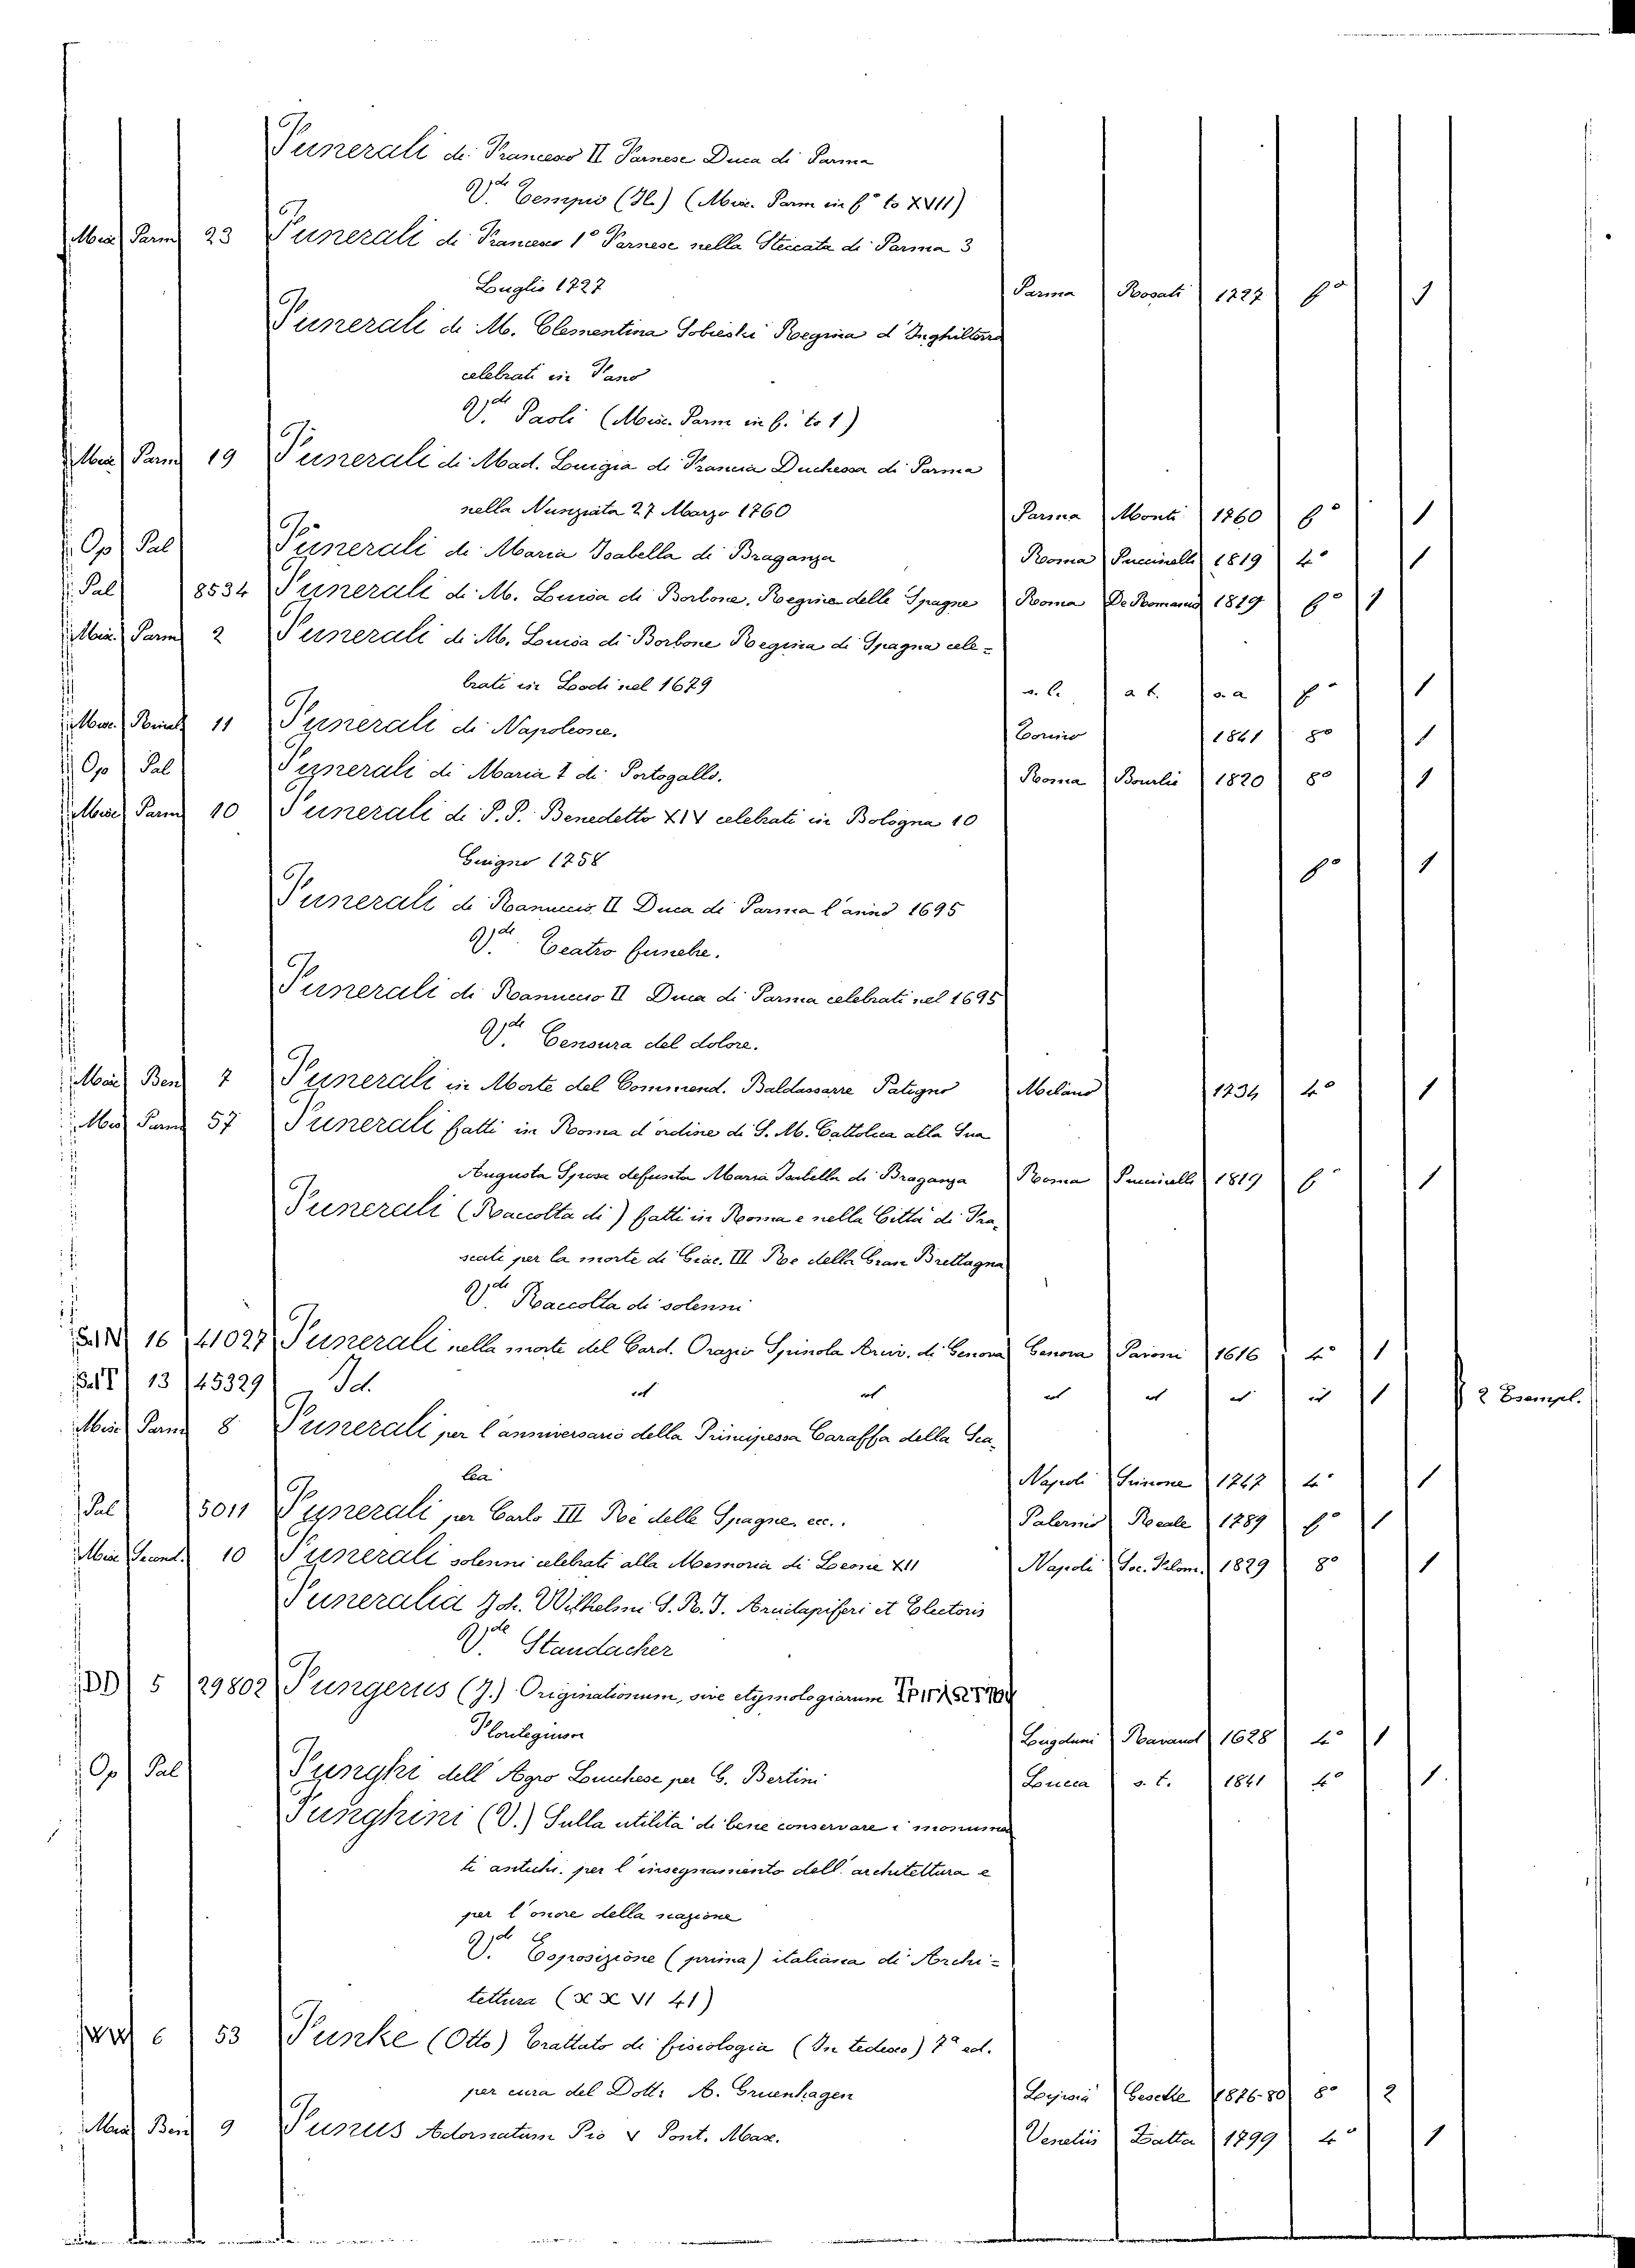 Funerali di Francesco II Farnese Duca di Parma
V.di Tempio (Il) (Misc. Parm in f.o to XVII)
Misc Parm 23 Funerali di Francesco 1o Farnese nella Steccata di Parma 3
Luglio 1727 Parma Rosati 1727 fo 1
Funerali di M. Clementina Sobieski Regina d'Inghilterra
celebrati in Fano
V.di Paoli (Misc. Parm in f. to 1)
Misc Parm 19 Funerali di Mad. Luigia di Francia Duchessa di Parma
nella Nunziata 27 Marzo 1760 Parma Monti 1760 fo 1
Op Pal Funerali di Maria Isabella di Braganza Roma Puccinelli 1819 4o 1
Pal 8534 Funerali di M. Luisa di Borbone, Regina delle Spagne Roma De Romanis 1819 fo 1
Misc. Parm 2 Funerali di M. Luisa di Borbone Regina di Spagna cele-
brati in Lodi nel 1679 s. l. s. t. s. a f 1
Misc. 11 Funerali di Napoleone. Torino 1841 8o 1
Op Pal Funerali di Maria I di Portogallo. Roma Bourlie 1820 8o 1
Misc Parm 10 Funerali di P. P. Benedetto XIV celebrati in Bologna 10
Giugno 1758 fo 1
Funerali di Ranuccio II Duca di Parma l'anno 1695
V.di Teatro funebre.
Funerali di Ranuccio II Duca di Parma celebrati nel 1695
V.di Censura del dolore.
Misc Ben 7 Funerali in Morte del Commend. Baldassarre Patigno Milano 1734 4o 1
Misc Parm 57 Funerali fatti in Roma d'ordine di S. M. Cattolica alla Sua
Augusta Sposa defunta Maria Isabella di Braganza Roma Puccinelli 1819 f 1
Funerali (Raccolta di) fatti in Roma e nella Città di Fra-
scati per la morte di Giac. III Re della Gran Brettagna
V.di Raccolta di solenni
16 41027 Funerali nella morte del Card. Orazio Spinola Arciv. di Genova Genova Pavoni 1616 4o 1
13 45329 Id. id id id id id id 1 2 Esempl.
Misc Parm 8 Funerali per l'anniversario della Principessa Caraffa della Sca-
lea Napoli Simone 1767 4o 1
Pal 5011 Funerali per Carlo III Re delle Spagne, ecc. Palermo Reale 1789 fo 1
Misc Second. 10 Funerali solenni celebrati alla Memoria di Leone XII Napoli Soc. Filom. 1829 8o 1
Funeralia Joh. Wilhelmi S. R. I. Archidapiferi et Electoris
V.de Standacher
DD 5 29802 Fungerus (J.) Originationum, sive etymologiarum
Florilegium Lugduni Ravaud 1628 4o 1
Op Pal Funghi dell'Agro Lucchese per G. Bertini Lucca s. t. 1841 4o 1
Funghini (V.) Sulla utilità di bene conservare i monumen
ti antichi, per l'insegnamento dell'architettura e
per l'onore della nazione
V.di Esposizione (prima) italiana di Archi-
tettura (XX VI 41)
6 53 Funke (Otto) Trattato di fisiologia (In tedesco) 7a ed.
per cura del Dott. A. Gruenhagen 1876-80 8o 2
Misc Ben 9 Funus Adornatum Pio V Pont. Max. Venetiis Zatta 1799 4o 1